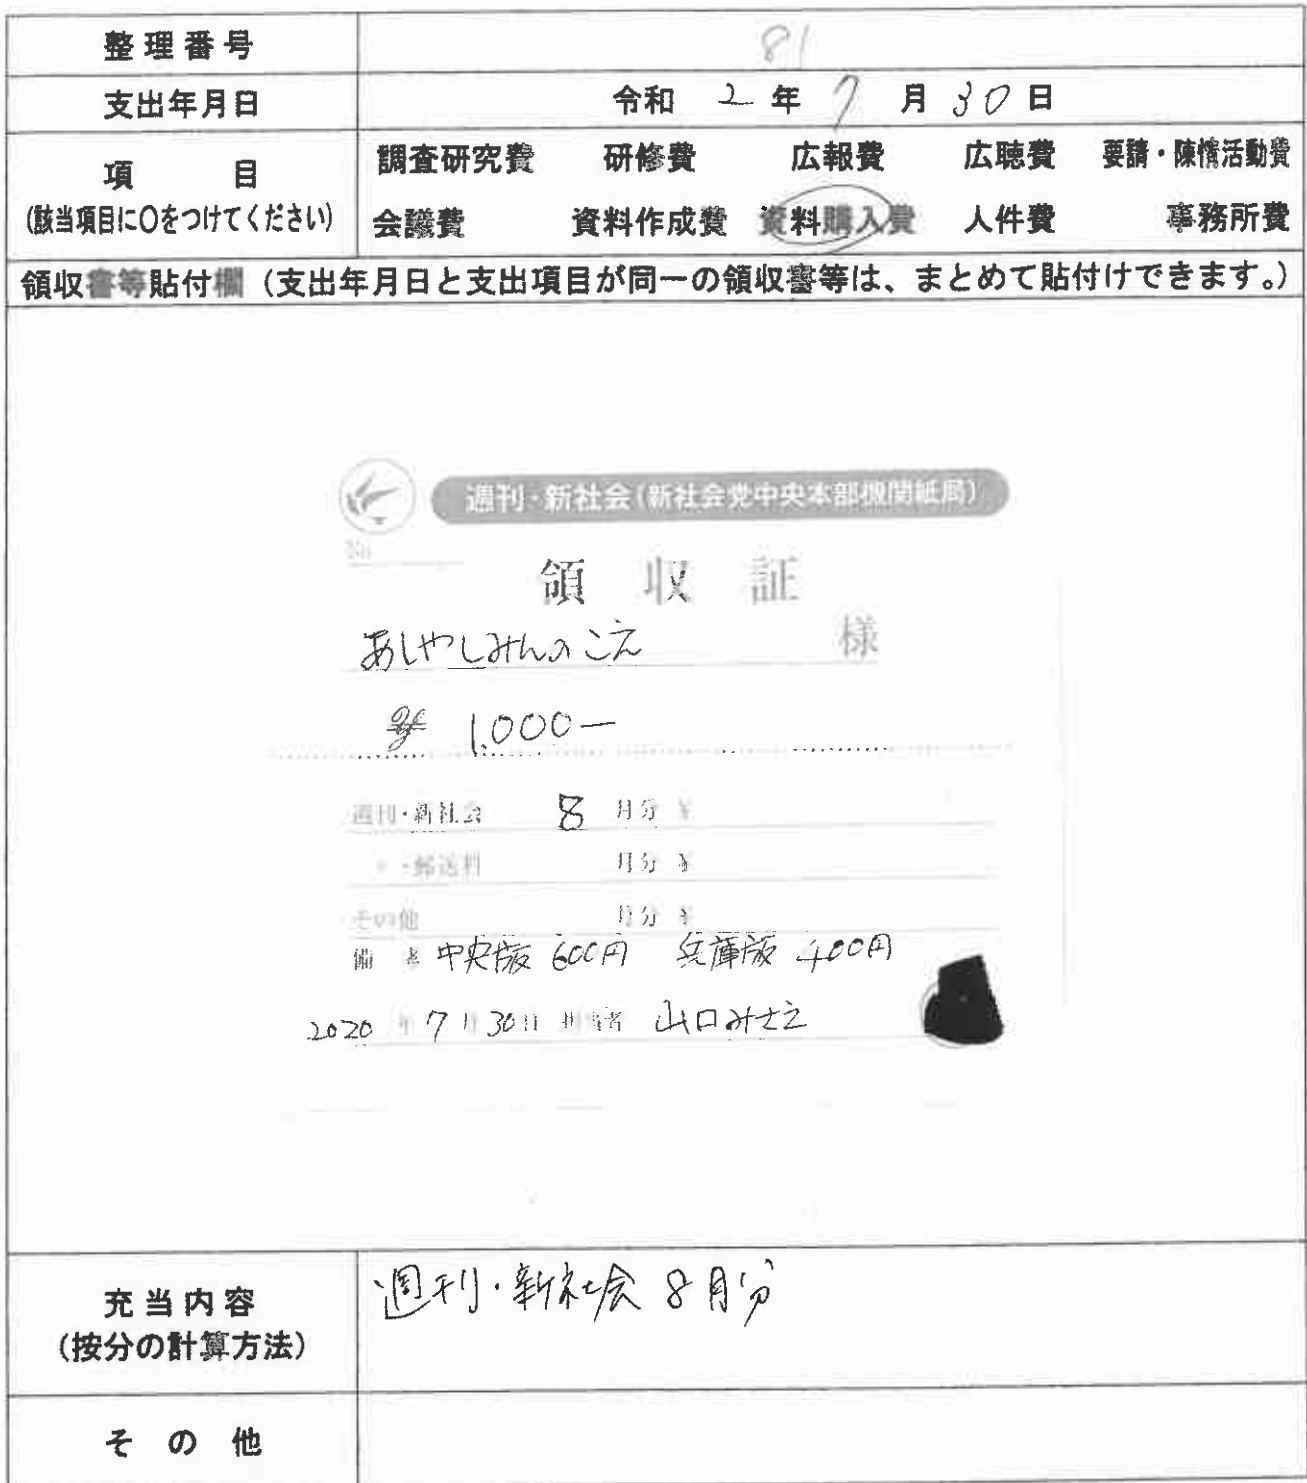 整理番号 81
支出年月日 令和 2 年 7 月 30 日
項 目 調査研究費 研修費 広報費 広聴費 要請・陳情活動費
(該当項目に〇をつけてください) 会議費 資料作成費 資料購入費 人件費 事務所費
領収書等貼付欄 (支出年月日と支出項目が同一の領収書等は、まとめて貼付けできます。)
週刊・新社会(新社会党中央本部機関紙局)
No
領 収 証
あしやしみんのこえ 様
¥ 1,000-
週刊・新社会 8 月分 ¥
〃 ・郵送料 月分 ¥
その他 月分 ¥
備 考 中央版 600円 兵庫版 400円
2020 年 7 月 30 日 担当者 山口みさえ
充当内容 週刊・新社会 8月分
(按分の計算方法)
そ の 他